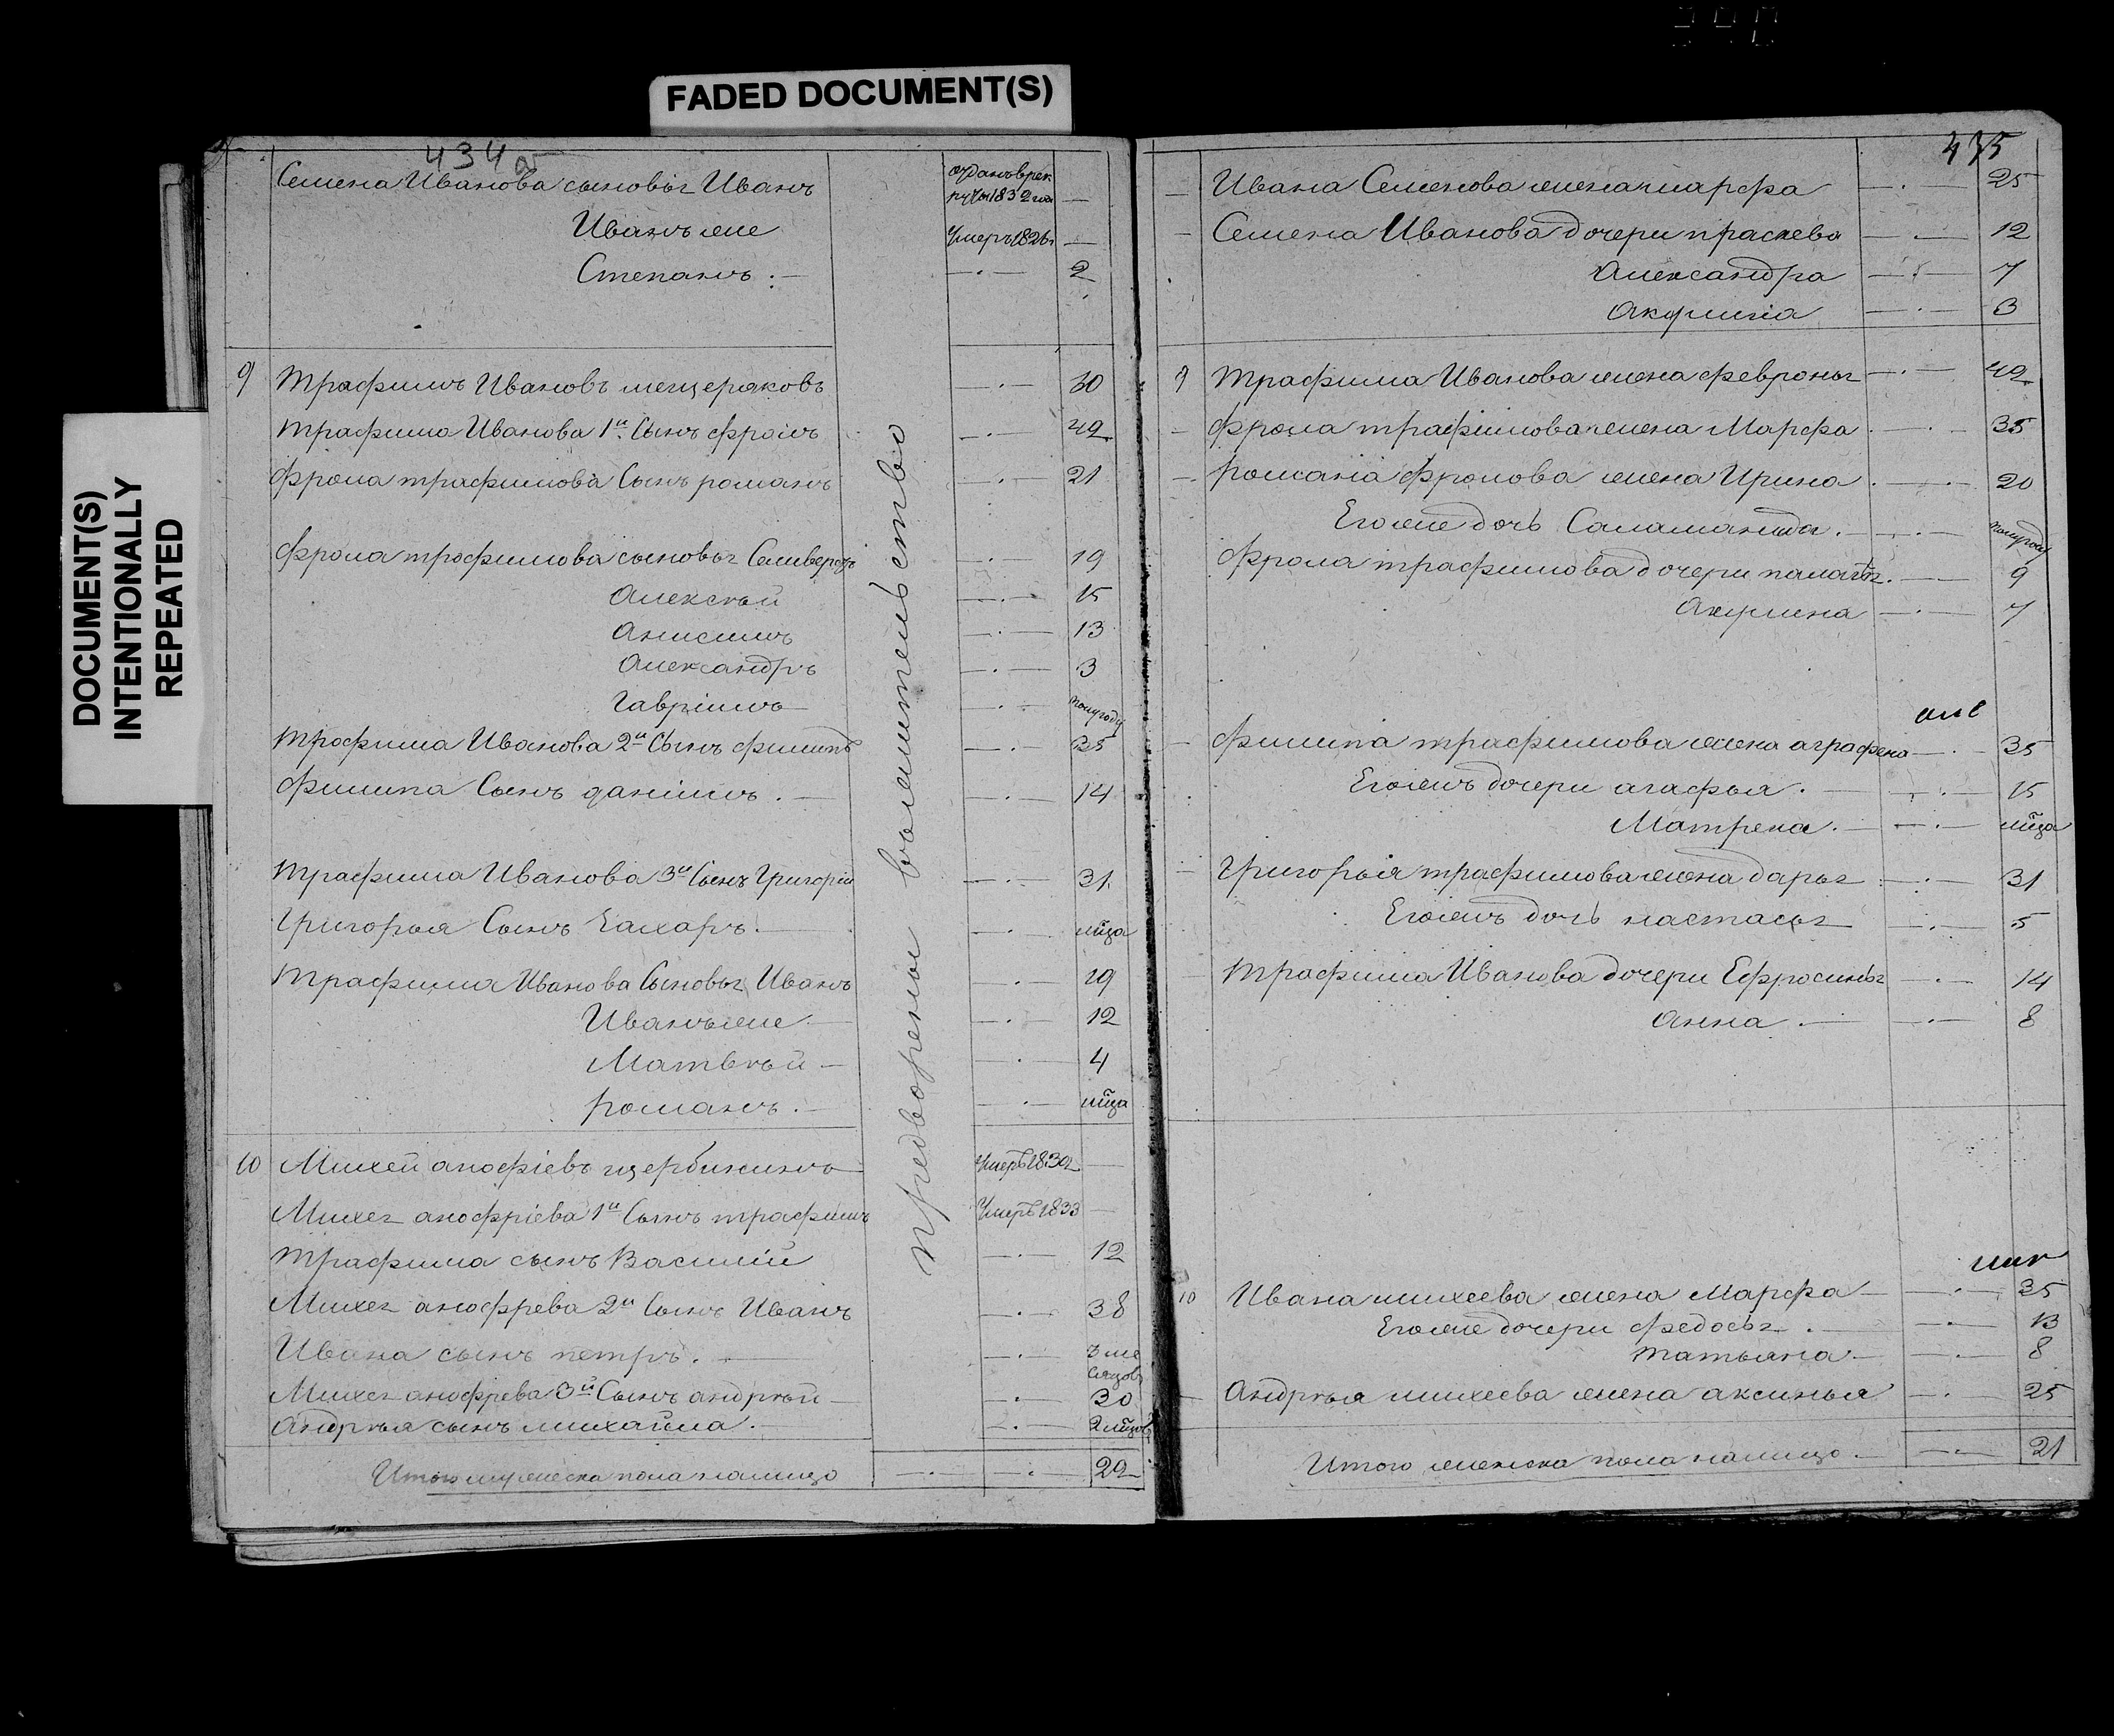 FADED DOCUMENT(S)
DOCUMENT(S)
INTENTIONALLY
REPEATED
434
Семена Иванова сыновья Иванъ
отданъ в рек
руты 1832 года —
Иванъ же Умеръ 1826 г —
Степанъ. — 2
9 Трафимъ Ивановъ мещеряковъ 60
Трафима Иванова 1й Сынъ фролъ 42
фрола трафимова Сынъ романъ 21
фрола трофимова сыновья Селиверстъ 19
Алексѣй 15
Анисимъ 13
Александръ 3
Гаврiилъ полугоду
Трофима Иванова 2й Сынъ филипъ 35
филипа Сынъ данiилъ. 14
Трафима Иванова 3й Сынъ Григорiй 31
Григорья Сынъ Захаръ. мйца
Трафима Иванова Сыновья Иванъ 19
Иванъ же 12
Матвѣй 4
романъ. мйца
10 Михей анофрiевъ щербининъ Умеръ 1830 —
Михея анофрiева 1й Сынъ трафимъ Умеръ 1833 —
Трафима сынъ Василiй 12
Михея анофрева 2й Сынъ Иванъ 38
Ивана сынъ петръ. 3 ме
сяцовъ
Михея анофрева 3й Сынъ андрѣй 30
Андрѣя сынъ михайла. 2 мйцовъ
Итого мужеска пола налицо 22
при дворенном вол
435
Ивана Семенова жена марфа 25
Семена Иванова дочери праскева 12
Александра 7
Акулина 3
9 Трафима Иванова жена февронья 42
фрола трафимова жена Марфа 35
романа фролова жена Ирина 20
Его же дочь Саламанида. полугоду
фрола трафимова дочери палагѣя. 9
Акулина 7
филипа трафимова жена аграфена 35
Его жъ дочери агафья. 15
Матрена. мйца
Григорья трафимова жена дарья 31
Его жъ дочь настасья 5
Трафима Иванова дочери Ефросинья 14
анна. 8
10 Ивана михеева жена Марфа 35
Его же дочери федосья. 13
татьяна 8
Андрѣя михеева жена аксинья 25
Итого женска пола налицо. 21